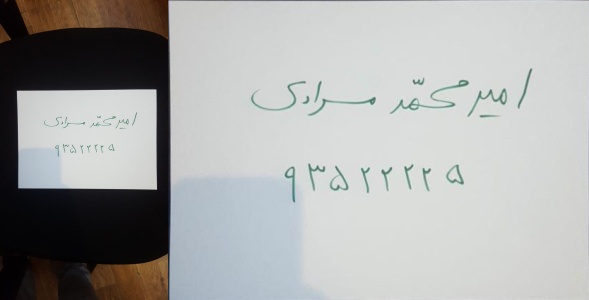 امیر محمّد مرادی
۹۳۵۲۲۲۲۵
امیر محمّد مرادی
۹۳۵۲۲۲۲۵